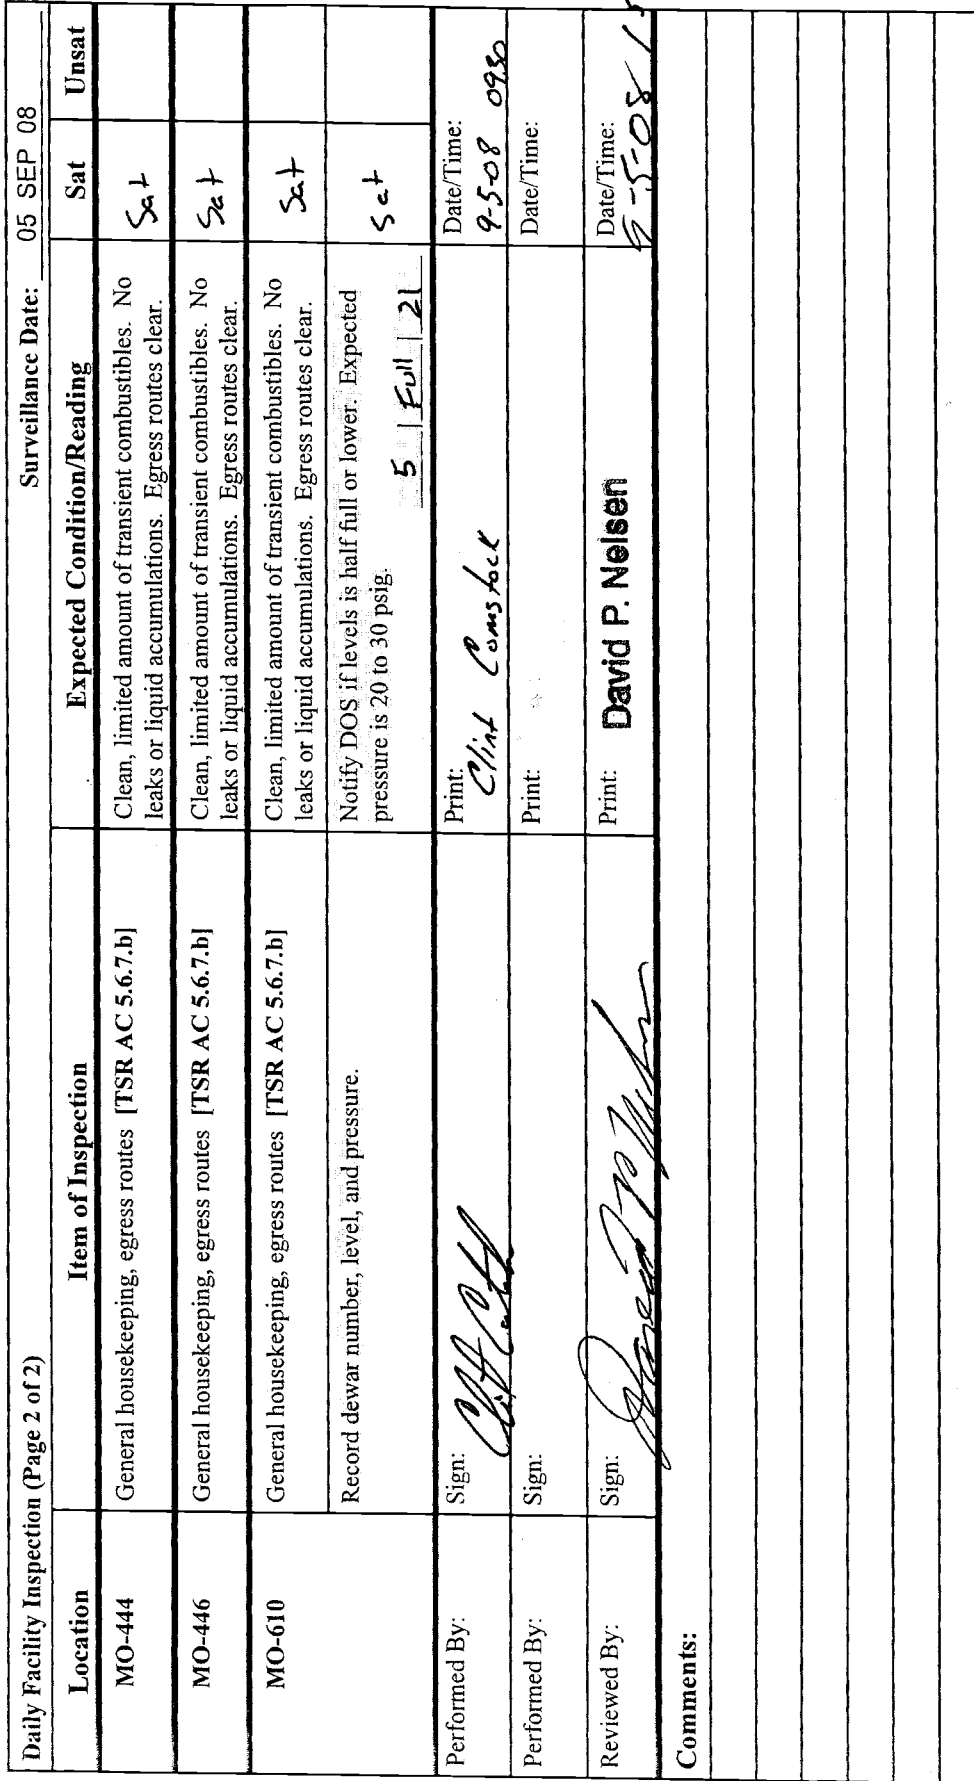 Daily Facility Inspection (Page 2 of 2) Surveillance Date: 05 SEP 08
Location Item of Inspection Expected Condition/Reading Sat Unsat
MO-444 General housekeeping, egress routes [TSR AC 5.6.7.b] Clean, limited amount of transient combustibles. No Sat
leaks or liquid accumulations. Egress routes clear.
MO-446 General housekeeping, egress routes [TSR AC 5.6.7.b] Clean, limited amount of transient combustibles. No Sat
leaks or liquid accumulations. Egress routes clear.
MO-610 General housekeeping, egress routes [TSR AC 5.6.7.b] Clean, limited amount of transient combustibles. No Sat
leaks or liquid accumulations. Egress routes clear.
Record dewar number, level, and pressure. Notify DOS if levels is half full or lower. Expected Sat
pressure is 20 to 30 psig. 5 | Full | 21
Performed By: Sign: Print: Date/Time:
Clint Comstock 9-5-08 0930
Performed By: Sign: Print: Date/Time:
Reviewed By: Sign: Print: Date/Time:
David P. Nelsen 9-5-08
Comments: